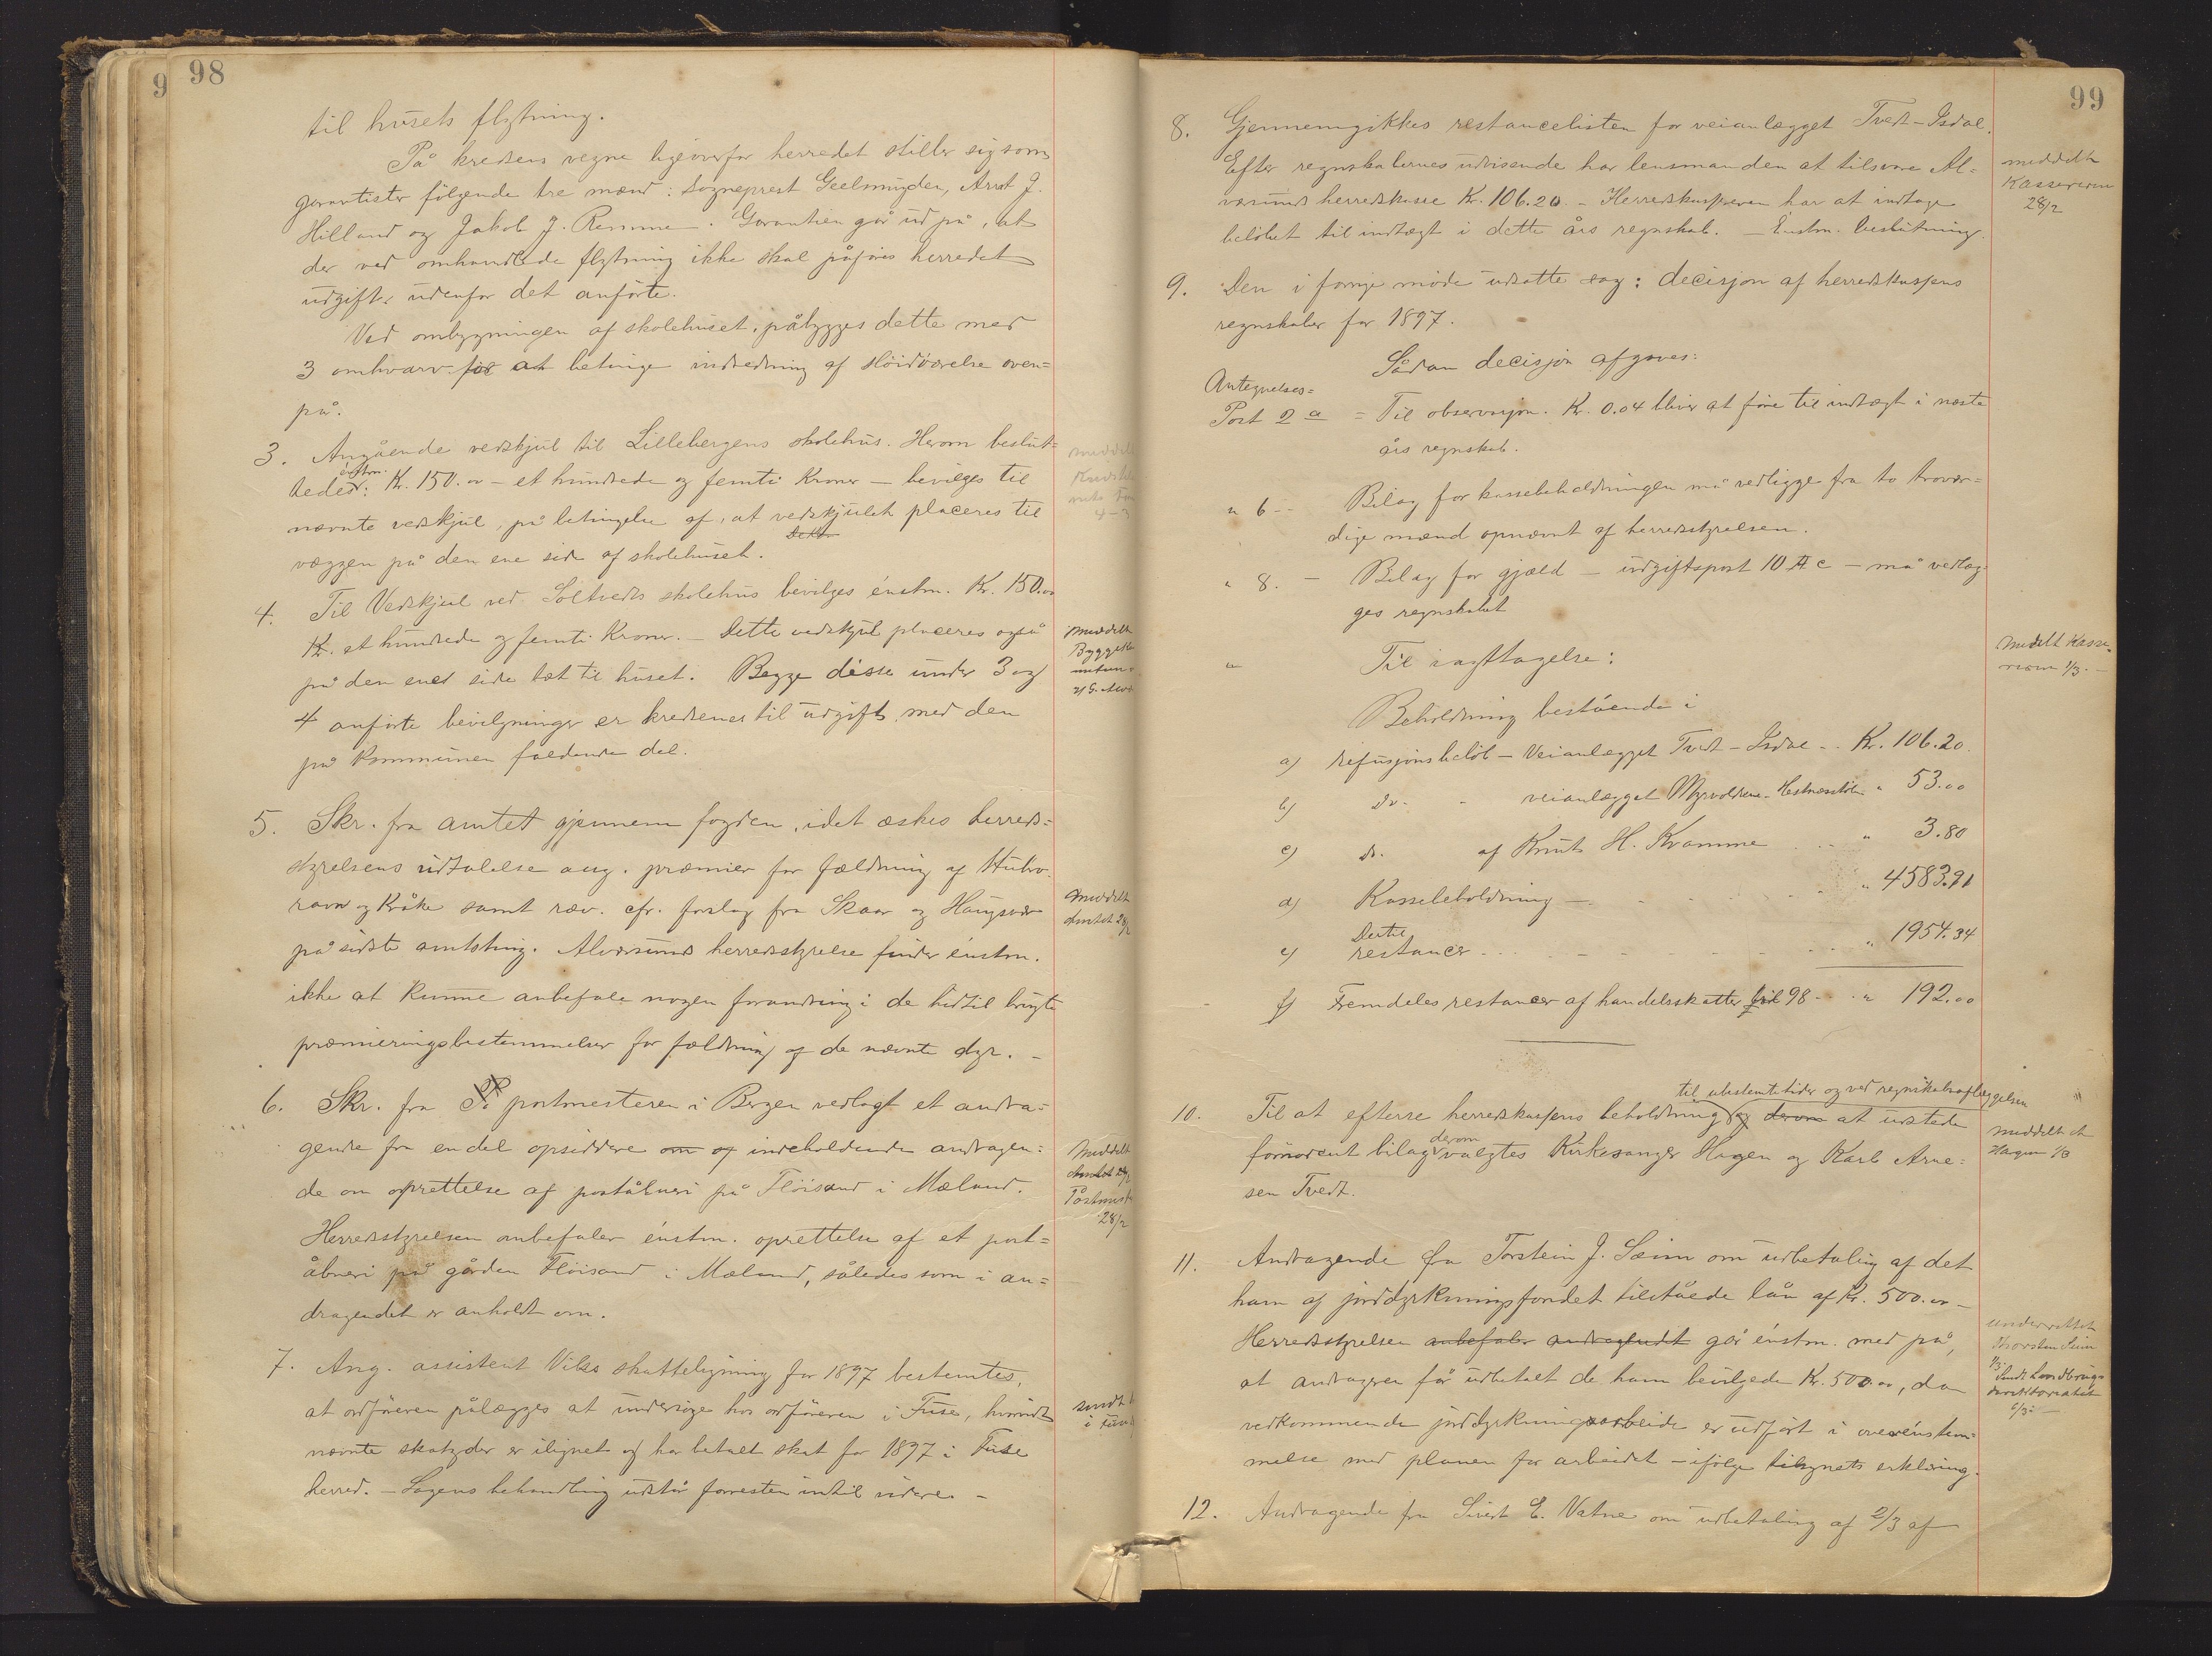 98
til husets flytning.
På kredsens vegne ligeoverfor herredet stiller sig som
garantister følgende tre mænd: Sogneprest Geelmuyden, Arnt J.
Hilland og Jakob J. Remme. Garantien går ud på, at
der ved omhandlede flytning ikke skal påføres herredet
udgifter udenfor det anførte.
Ved ombygningen af skolehuset, påbygges dette med
3 omhvarv for at betinge indredning af Høidværelse oven=
på.
3. Angående vedskjul til Lillebergens skolehus. Herom beslut=
tedes énstm.: Kr. 150.00 - et hundrede og femti Kroner - bevilges til
nævnte vedskjul, på betingelse af, at vedskjulet placeres til
væggen på den ene side af skolehuset.
4. Til Vedskjul ved Soltvedts skolehus bevilges énstm. Kr. 150.00
Kr. et hundrede og femti Kroner. - Dette vedskjul placeres også
på den enes side tæt til huset. Begge disse under 3 og
4 anførte bevilgninger er kredsenes til udgift med den
på Kommunen faldende del.
5. Skr. fra amtet gjennem fogden, idet æskes herreds=
styrelsens udtalelse ang. præmier for fældning af Hubro
ravn og Kråke samt ræv. cfr. forslag fra Skaar og Haugsvær
på sidste amtsting. Alversunds herredsstyrelse finder énstm.
ikke at kunne anbefale nogen forandring i de hidtil brugte
præmieringsbestemmelser for fældning af de nævnte dyr. -
6. Skr. fra postmesteren i Bergen vedlagt et andra=
gende fra en del opsiddere om og indeholdende andragen=
de om oprettelse af poståbneri på Fløisand i Mæland.
Herredsstyrelsen anbefaler énstm. oprettelse af et post=
åbneri på gården Fløisand i Mæland, således som i an=
dragendet er anholdt om.
7. Ang. assistent Viks skatteligning for 1897 bestemtes,
at ordføreren pålægges at undersøge hos ordføreren i Fuse, hvorvidt
nævnte skatyder er ilignet og har betalt skat for 1897 i Fuse
herred. - Sagens behandling udstår forresten indtil videre. -
Meddelt
Amtet 28/2
Meddelt
Amtet 28/2
Postmest
28/2
sendt
99
8. Gjennemgikkes restancelisten for veianlægget Tvedt - Isdal.
Efter regnskabernes udvisende har lensmanden at tilsvare Al=
versunds herredskasse Kr. 106.20. - Herredskasseren har at indtage
beløbet til indtægt i dette års regnskab. - Énstm. beslutning.
meddelt
Kassereren
28/2
9. Den i forrige møde udsatte sag: decisjon af herredskassens
regnskaber for 1897.
Sådan decisjon afgaves:
Antegnelses=
Post 2 a = Til observasjon. Kr. 0.04 bliver at føre til indtægt i næste
års regnskab.
" 6 - - Bilag for kassebeholdningen må vedligge fra to trovær=
dige mænd opnævnt af herredsstyrelsen.
" 8. - Bilag for gjæld - udgiftspost 10 A c - må vedlæg=
ges regnskabet
" Til iagttagelse:
Meddelt Kasse
reren 1/3. -
Beholdning bestående i
a) refusjonsbeløb - Veianlægget Tvedt - Isdal - . Kr. 106.20.
b) do. - veianlægget Myrvoldene - Hestnesstølen " 53.00
c) do. af Knut H. Kvamme . . - " 3.80
d) Kassebeholdning - . . . " 4583.91
e) Dertil restancer . . . - - - . . " 1954.34
f) Fremdeles restancer af handelsskatter for 98 - . " 192.00
10. Til at efterse herredskassens beholdning til ubestemte tider og ved regnskabsaflæggelsen og derom at udstede
fornødent bilag derom valgtes Kirkesanger Hagen og Karl Arne=
sen Tvedt.
meddelt
Hagen 1/3
11. Andragende fra Torstein J. Seim om udbetaling af det
ham af jorddyrkningsfondet tilståede lån af Kr. 500.00 -
Herredsstyrelsen anbefaler andragendet går énstm. med på,
at andrageren får udbetalt de ham bevilgede Kr. 500.00, da
vedkommende jorddyrkningsarbeide er udført i overénstem=
melse med planen for arbeidet - ifølge tilsynets erklæring.
underrettet
Thorstein Seim
1/3
Sendt Landbrugs
direktoratet
6/3. -
12. Andragende fra Sivert E. Vatne om udbetaling af 2/3 af